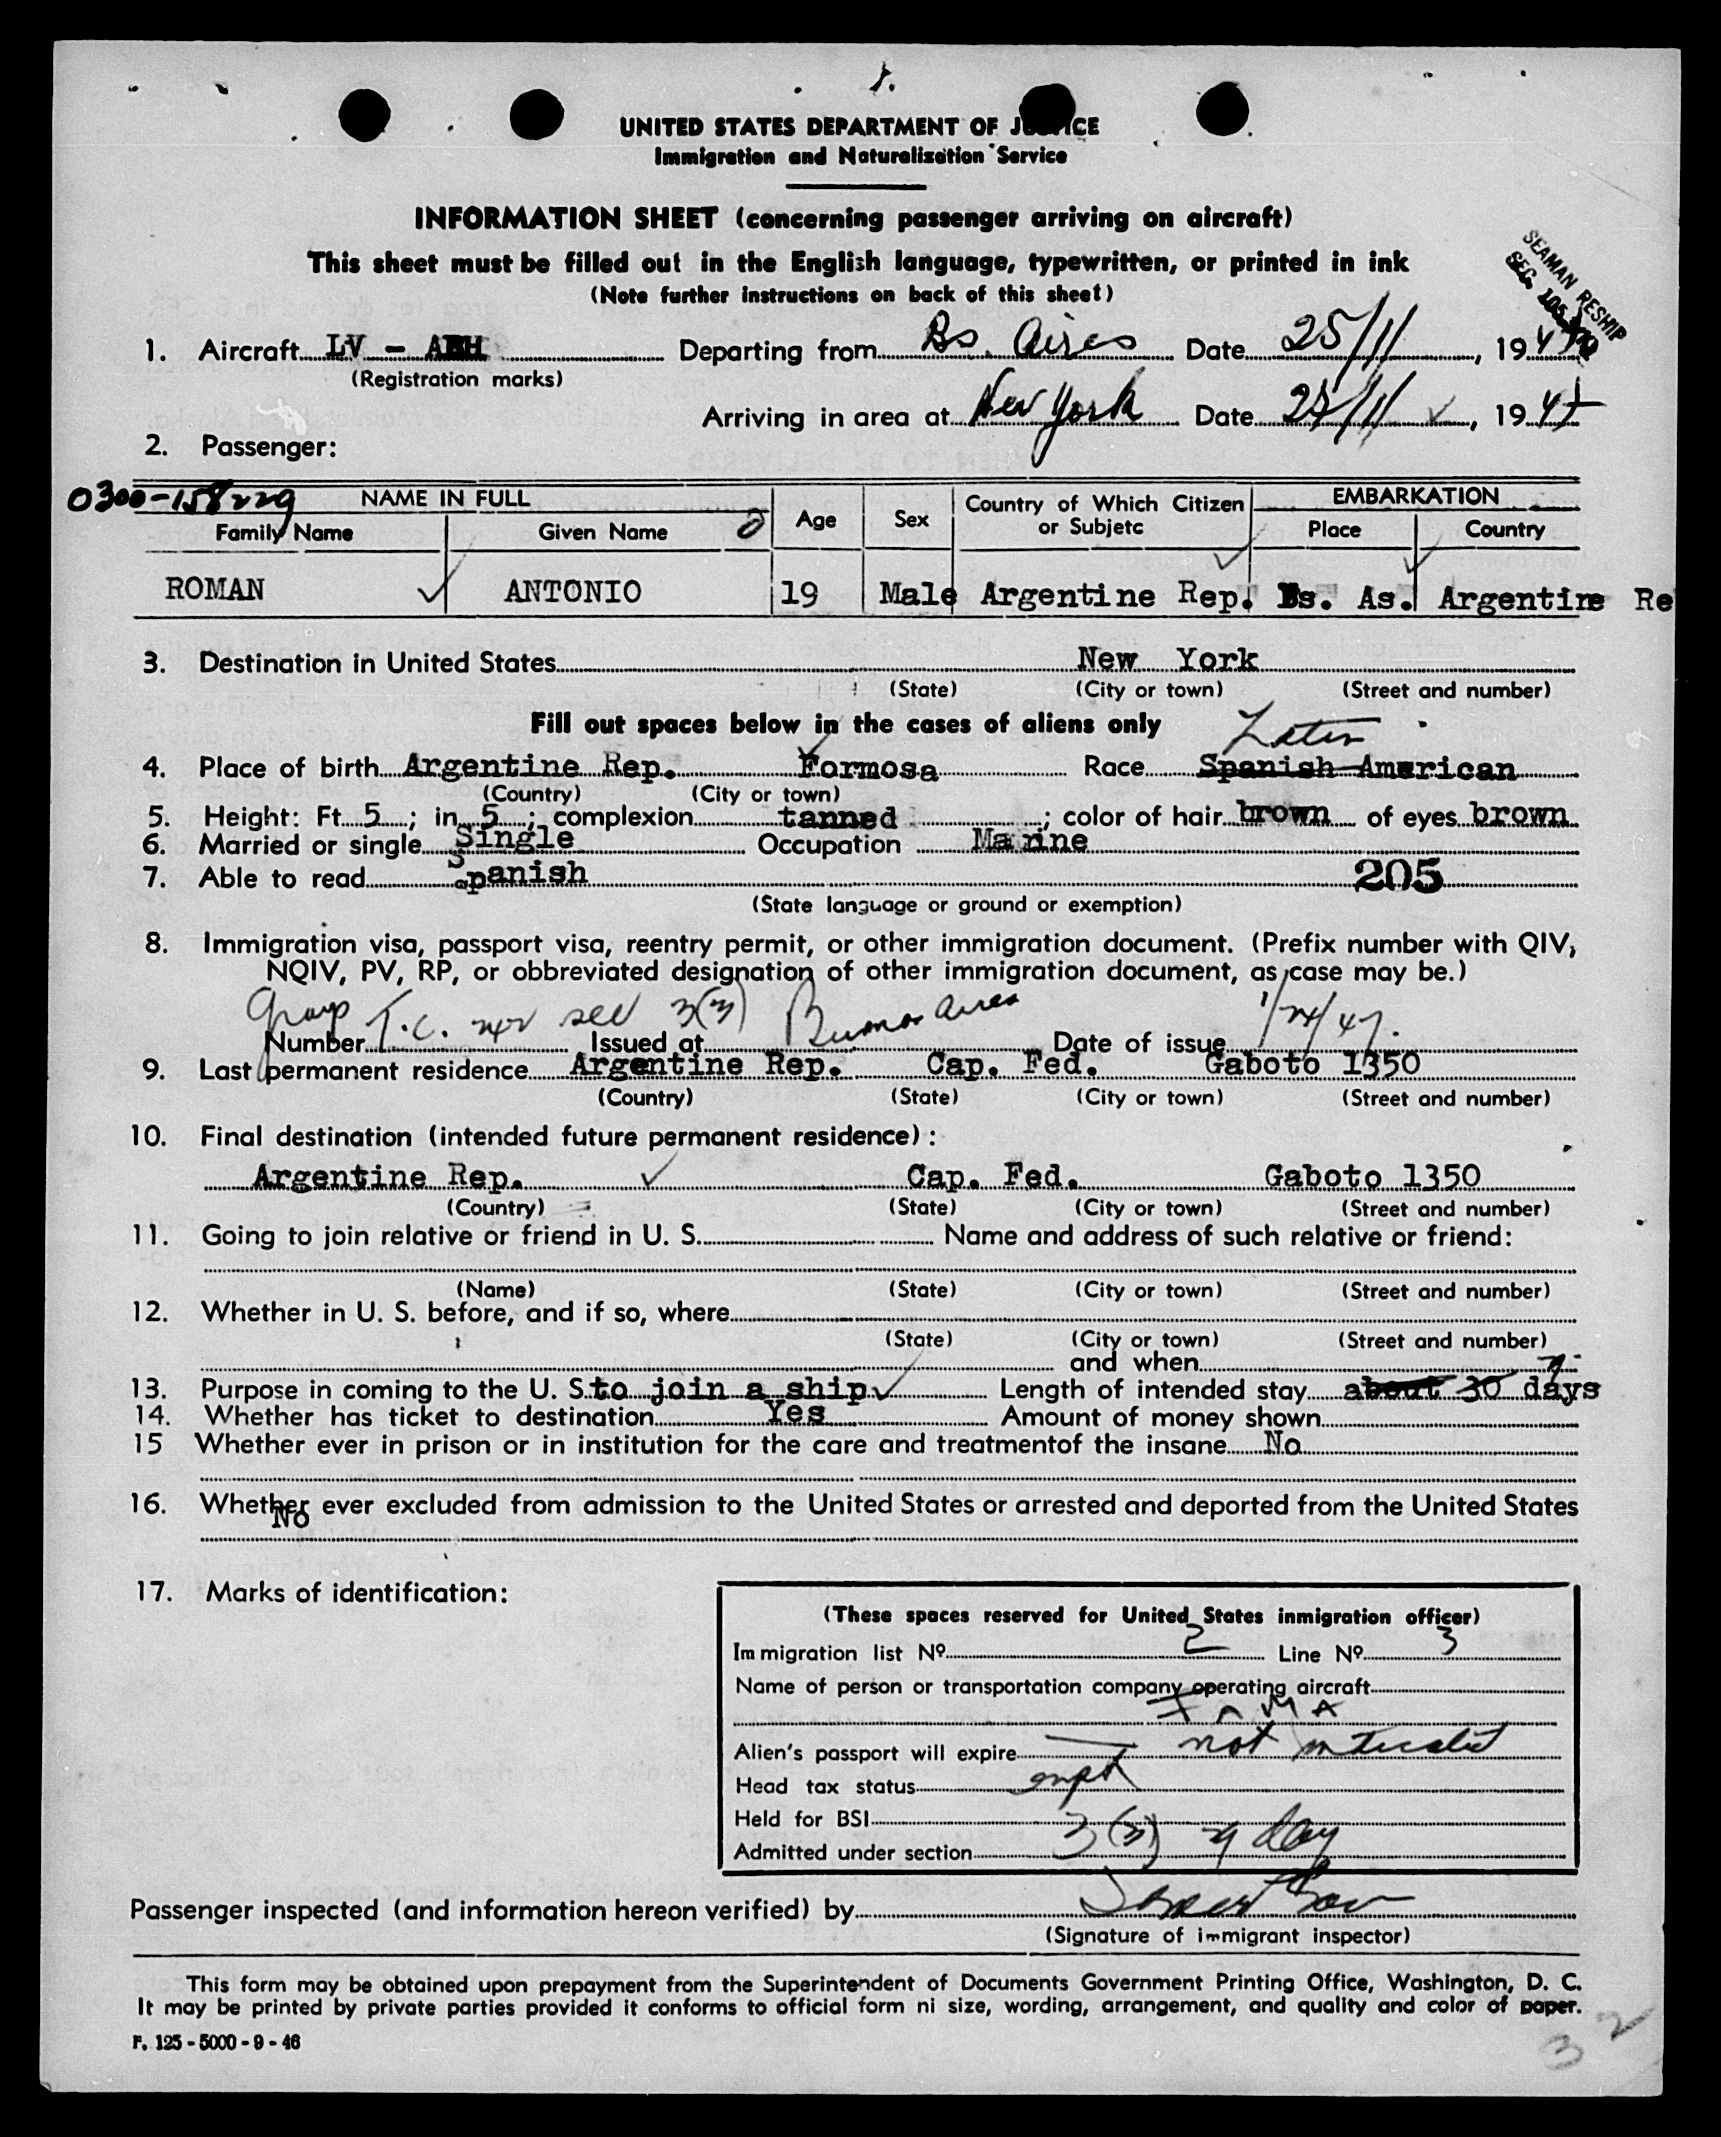 UNITED STATES DEPARTMENT OF JUSTICE
Immigration and Naturalization Service
INFORMATION SHEET (concerning passenger arriving on aircraft)
This sheet must be filled out in the English language, typewritten, or printed in ink
(Note further instructions on back of this sheet)
SEAMAN RESHIP
SEC. 105
1. Aircraft LV - Departing from Bs. Aires Date 25/11, 19
(Registration marks)
Arriving in area at New York Date , 19
2. Passenger:
0300-158229 NAME IN FULL Age Sex Country of Which Citizen or Subjetc EMBARKATION
Family Name Given Name Place Country
ROMAN ANTONIO 19 Male Argentine Rep. Bs. As. Argentine Re
3. Destination in United States New York
(State) (City or town) (Street and number)
Fill out spaces below in the cases of aliens only
Latin
4. Place of birth Argentine Rep. Formosa Race Spanish American
(Country) (City or town)
5. Height: Ft. 5; in. 5; complexion tanned; color of hair brown of eyes brown
6. Married or single Single Occupation Marine
7. Able to read Spanish 205
(State language or ground or exemption)
8. Immigration visa, passport visa, reentry permit, or other immigration document. (Prefix number with QIV,
NQIV, PV, RP, or obbreviated designation of other immigration document, as case may be.)
Number Group T.C. sec 3(3) Issued at Buenos Aires Date of issue 1/24/47.
9. Last permanent residence Argentine Rep. Cap. Fed. Gaboto 1350
(Country) (State) (City or town) (Street and number)
10. Final destination (intended future permanent residence):
Argentine Rep. Cap. Fed. Gaboto 1350
(Country) (State) (City or town) (Street and number)
11. Going to join relative or friend in U. S. Name and address of such relative or friend:
(Name) (State) (City or town) (Street and number)
12. Whether in U. S. before, and if so, where
(State) (City or town) (Street and number)
and when
13. Purpose in coming to the U. S. to join a ship Length of intended stay about 30 days
14. Whether has ticket to destination Yes Amount of money shown
15 Whether ever in prison or in institution for the care and treatmentof the insane No
16. Whether ever excluded from admission to the United States or arrested and deported from the United States
No
17. Marks of identification:
(These spaces reserved for United States inmigration officer)
Immigration list Nº 2 Line Nº 3
Name of person or transportation company operating aircraft
FAMA
Alien's passport will expire not indicated
Head tax status
Held for BSI
Admitted under section 3(3) day
Passenger inspected (and information hereon verified) by
(Signature of immigrant inspector)
This form may be obtained upon prepayment from the Superintendent of Documents Government Printing Office, Washington, D. C.
It may be printed by private parties provided it conforms to official form ni size, wording, arrangement, and quality and color of paper.
F. 125 - 5000 - 9 - 46
3 2